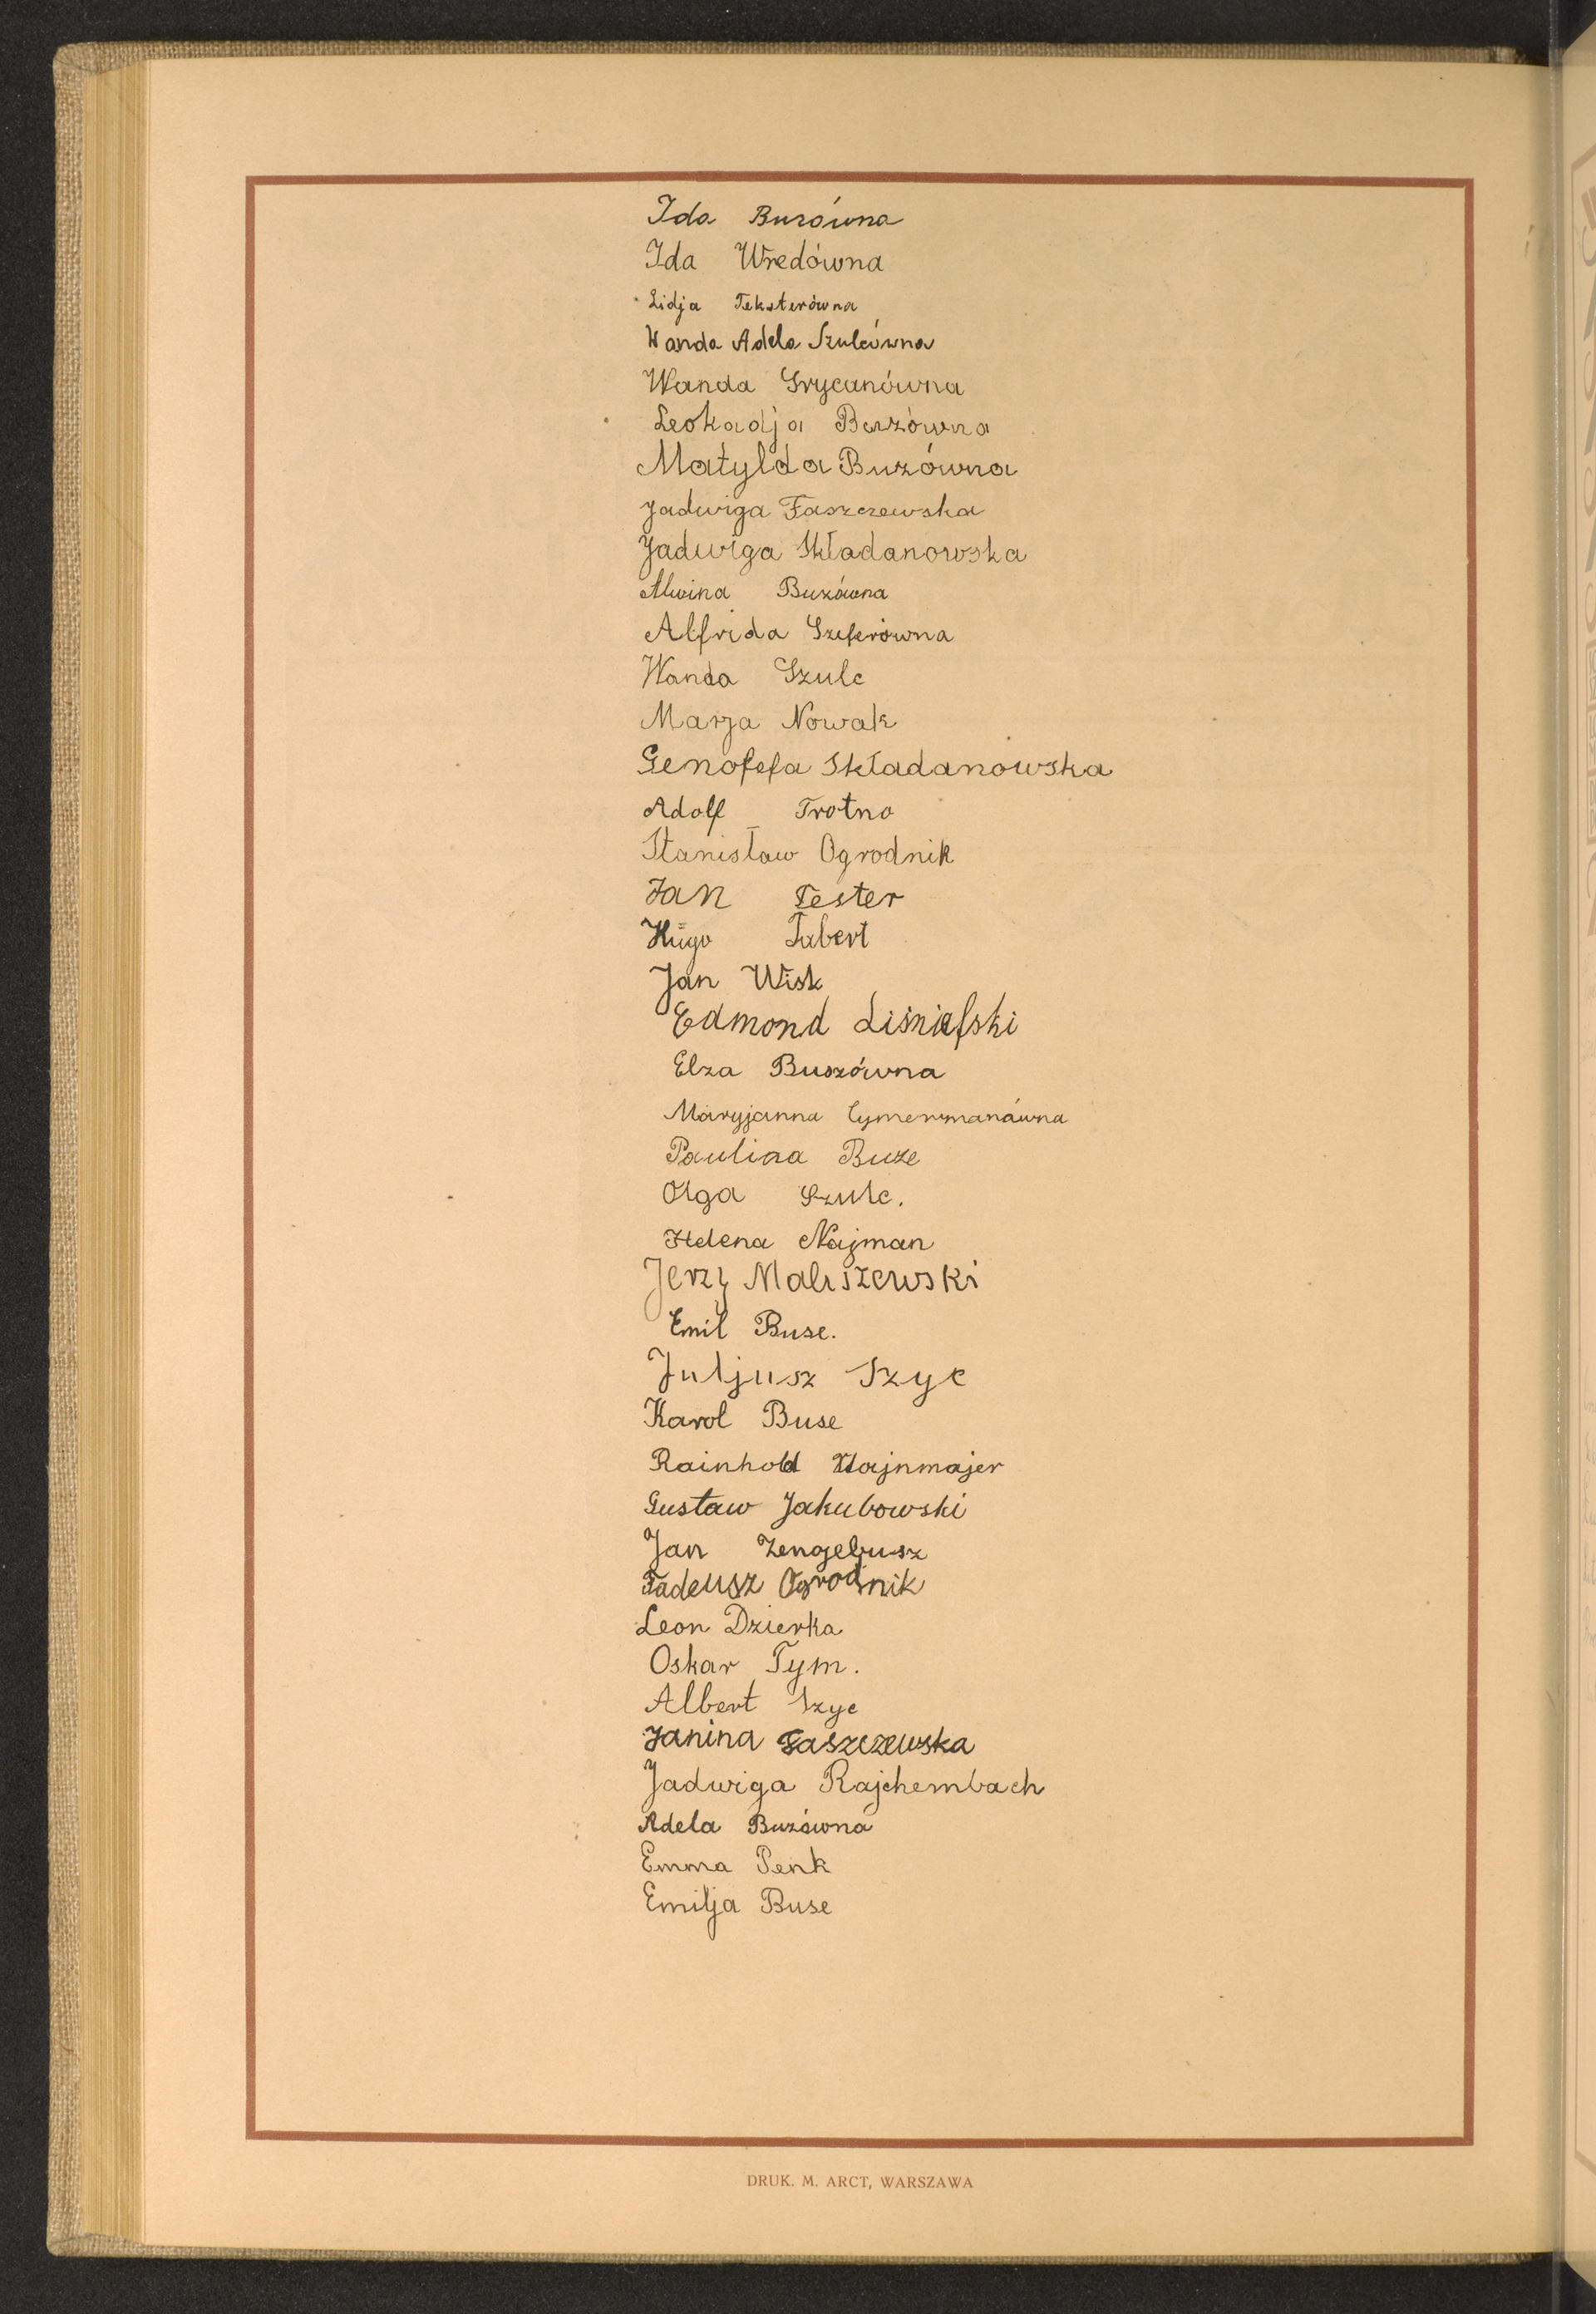 Ida Buzówna
Ida Wredówna
Lidja Teksterówna
Wanda Adela Szulcówna
Wanda Grycanówna
Leokadja Buzówna
Matylda Buzówna
Jadwiga Faszczewska
Jadwiga Składanowska
Alwina Buzówna
Alfrida Szeferówna
Wanda Szulc
Marja Nowak
Genofefa Składanowska
Adolf Trotno
Stanisław Ogrodnik
Jan Fester
Hugo Tabert
Jan Wisk
Edmond Liśniefski
Elza Buszówna
Maryjanna Cymermanówna
Paulina Buze
Olga Szulc.
Helena Najman
Jerzy Maliszewski
Emil Buse.
Juljusz Szyc
Karol Buse
Rainhold Hajnmajer
Gustaw Jakubowski
Jan Zengebusz
Tadeusz Ogrodnik
Leon Dzierka
Oskar Tym.
Albert Szyc
Janina Faszczewska
Jadwiga Rajchembach
Adela Buzówna
Emma Penk
Emilja Buse
DRUK. M. ARCT, WARSZAWA